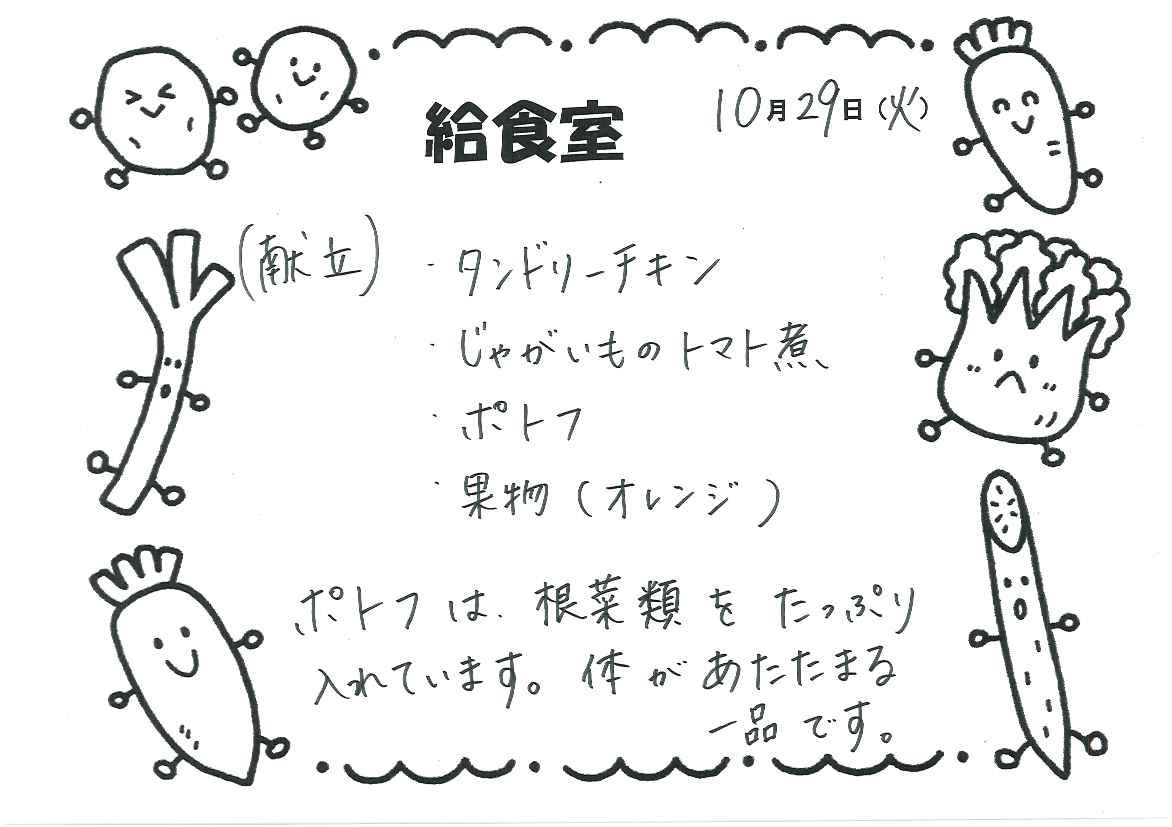 給食室
10月29日(火)
(献立)
・タンドリーチキン
・じゃがいものトマト煮
・ポトフ
・果物(オレンジ)
ポトフは、根菜類をたっぷり
入れています。体があたたまる
一品です。